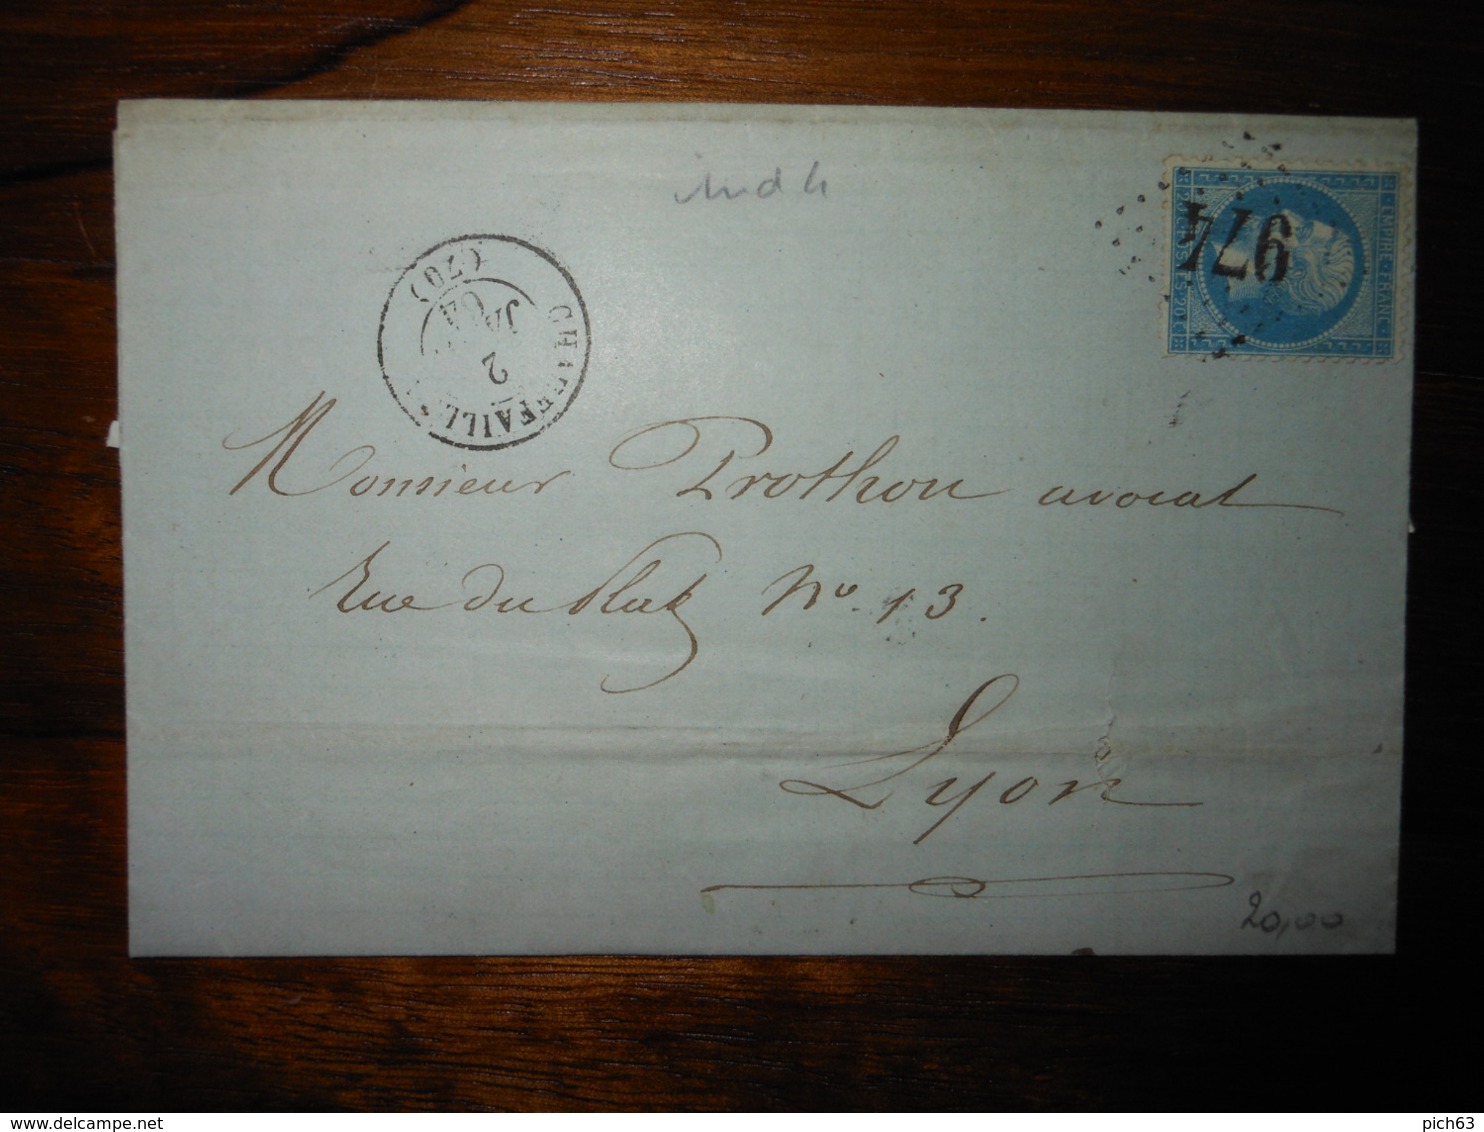 ind 4
974
EMPIRE·FRANC
CHAUFFAILLES (70)
2
JA
Monsieur Prothon avocat
Rue du Plat No. 13.
Lyon
20,00
delcampe.net
pich63